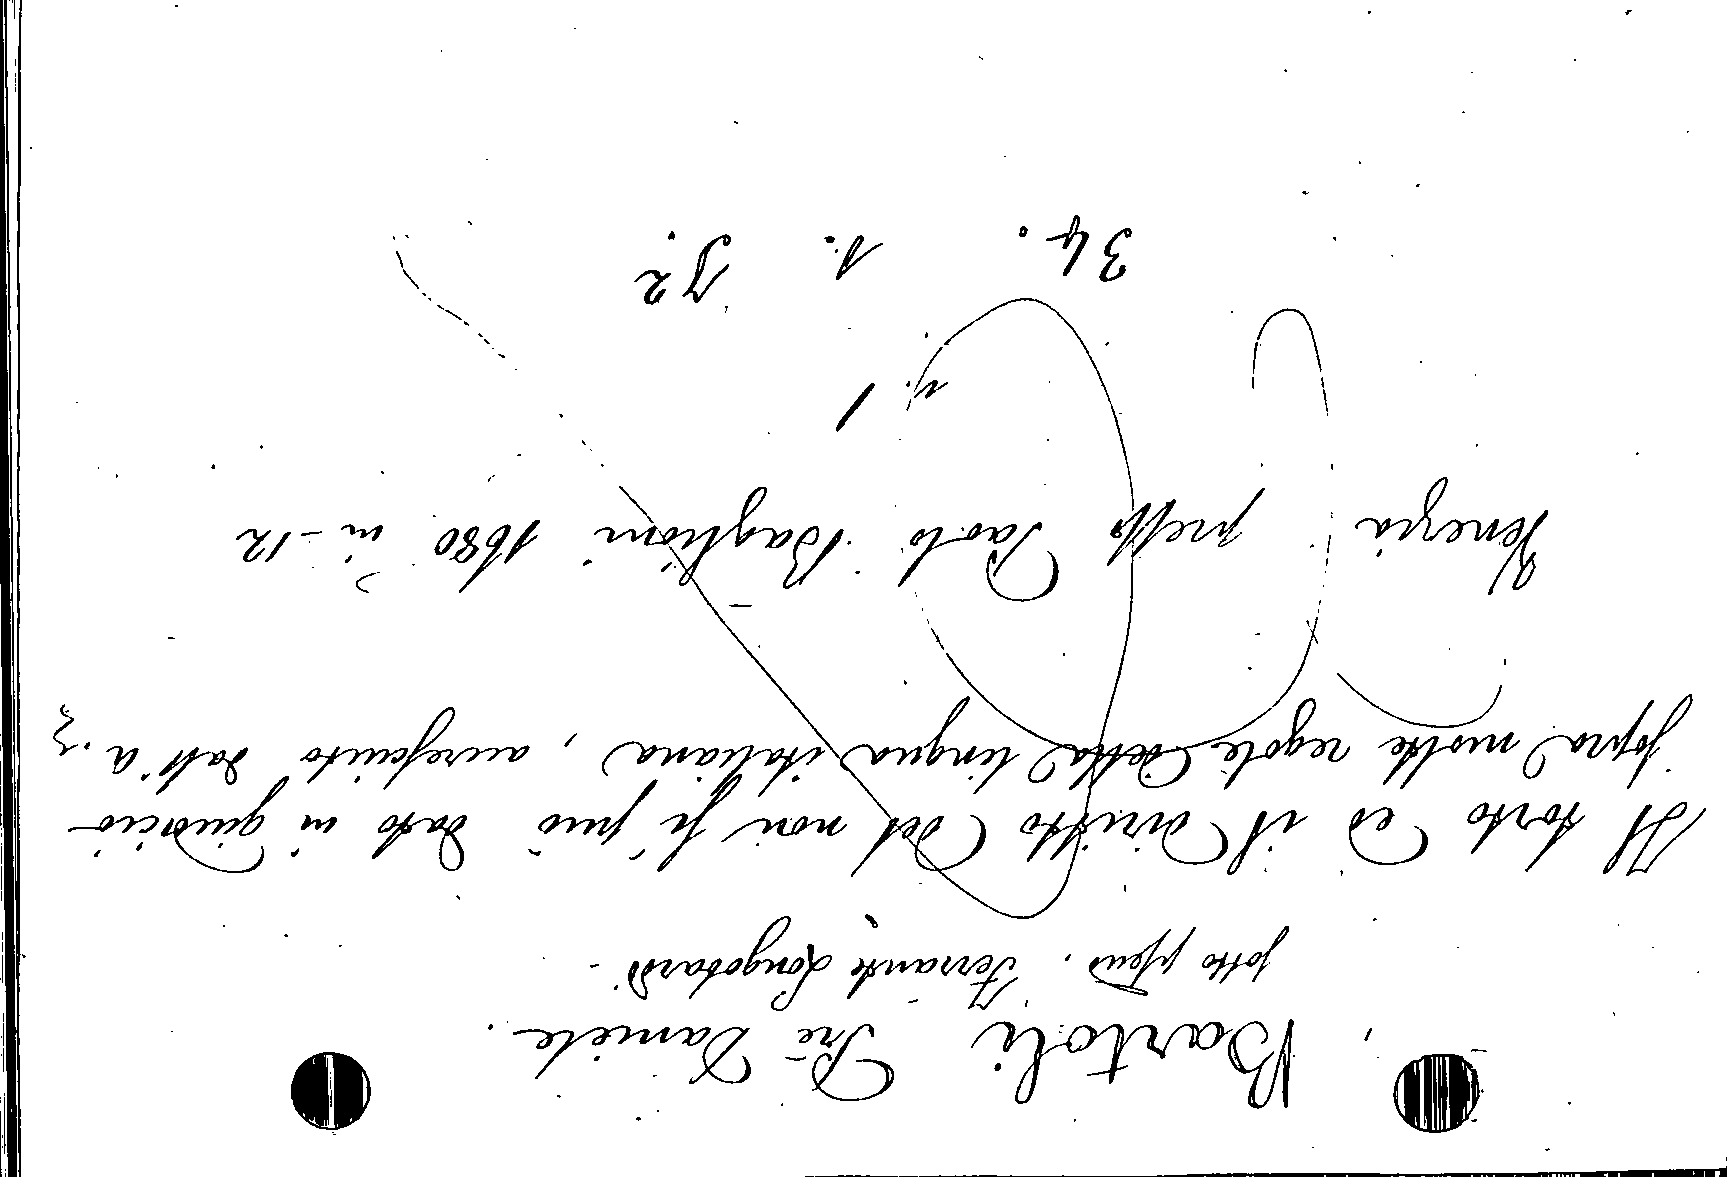 Bartoli Pre Daniele.
sotto pseud. Ferrante Longobardi -
Il torto ed il diritto del non si può dato in giudicio
sopra molte regole della lingua italiana, accresciuto dall'a. &
Venezia presso Paolo Baglioni 1680 in-12
v. 1
34. 1. 52